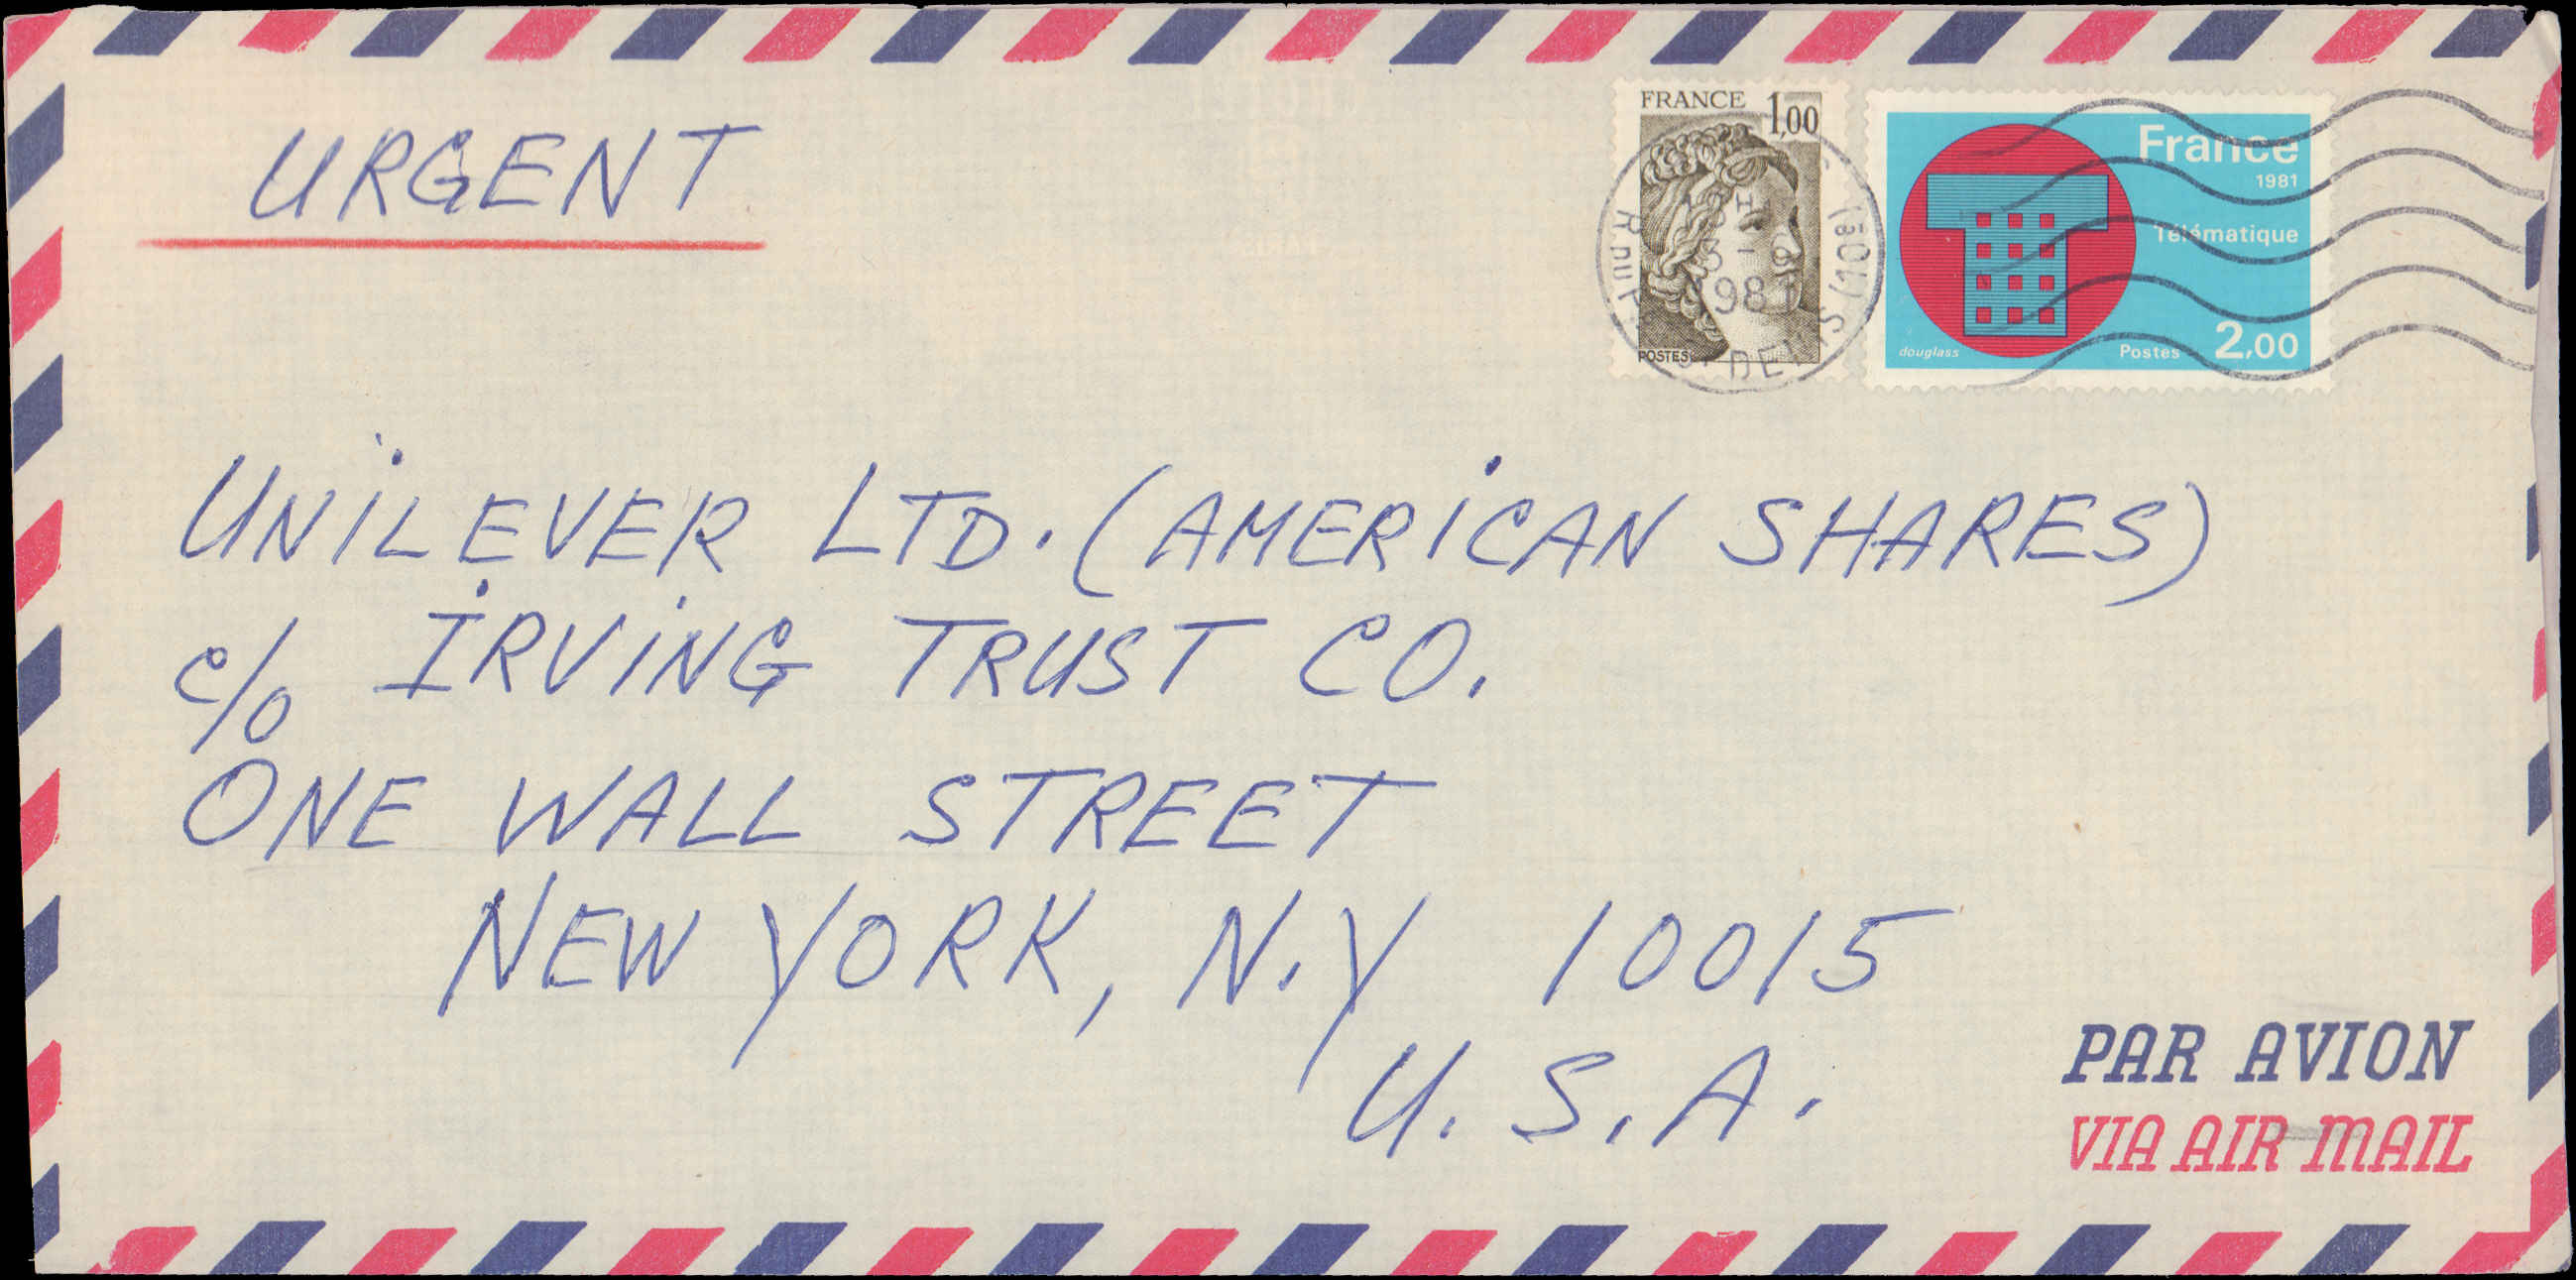 URGENT
FRANCE 1,00
POSTES
France
1981
Télématique
douglass
Postes 2,00
UNILEVER LTD. (AMERICAN SHARES)
c/o IRVING TRUST CO.
ONE WALL STREET
NEW YORK, N.Y 10015
U.S.A.
PAR AVION
VIA AIR MAIL